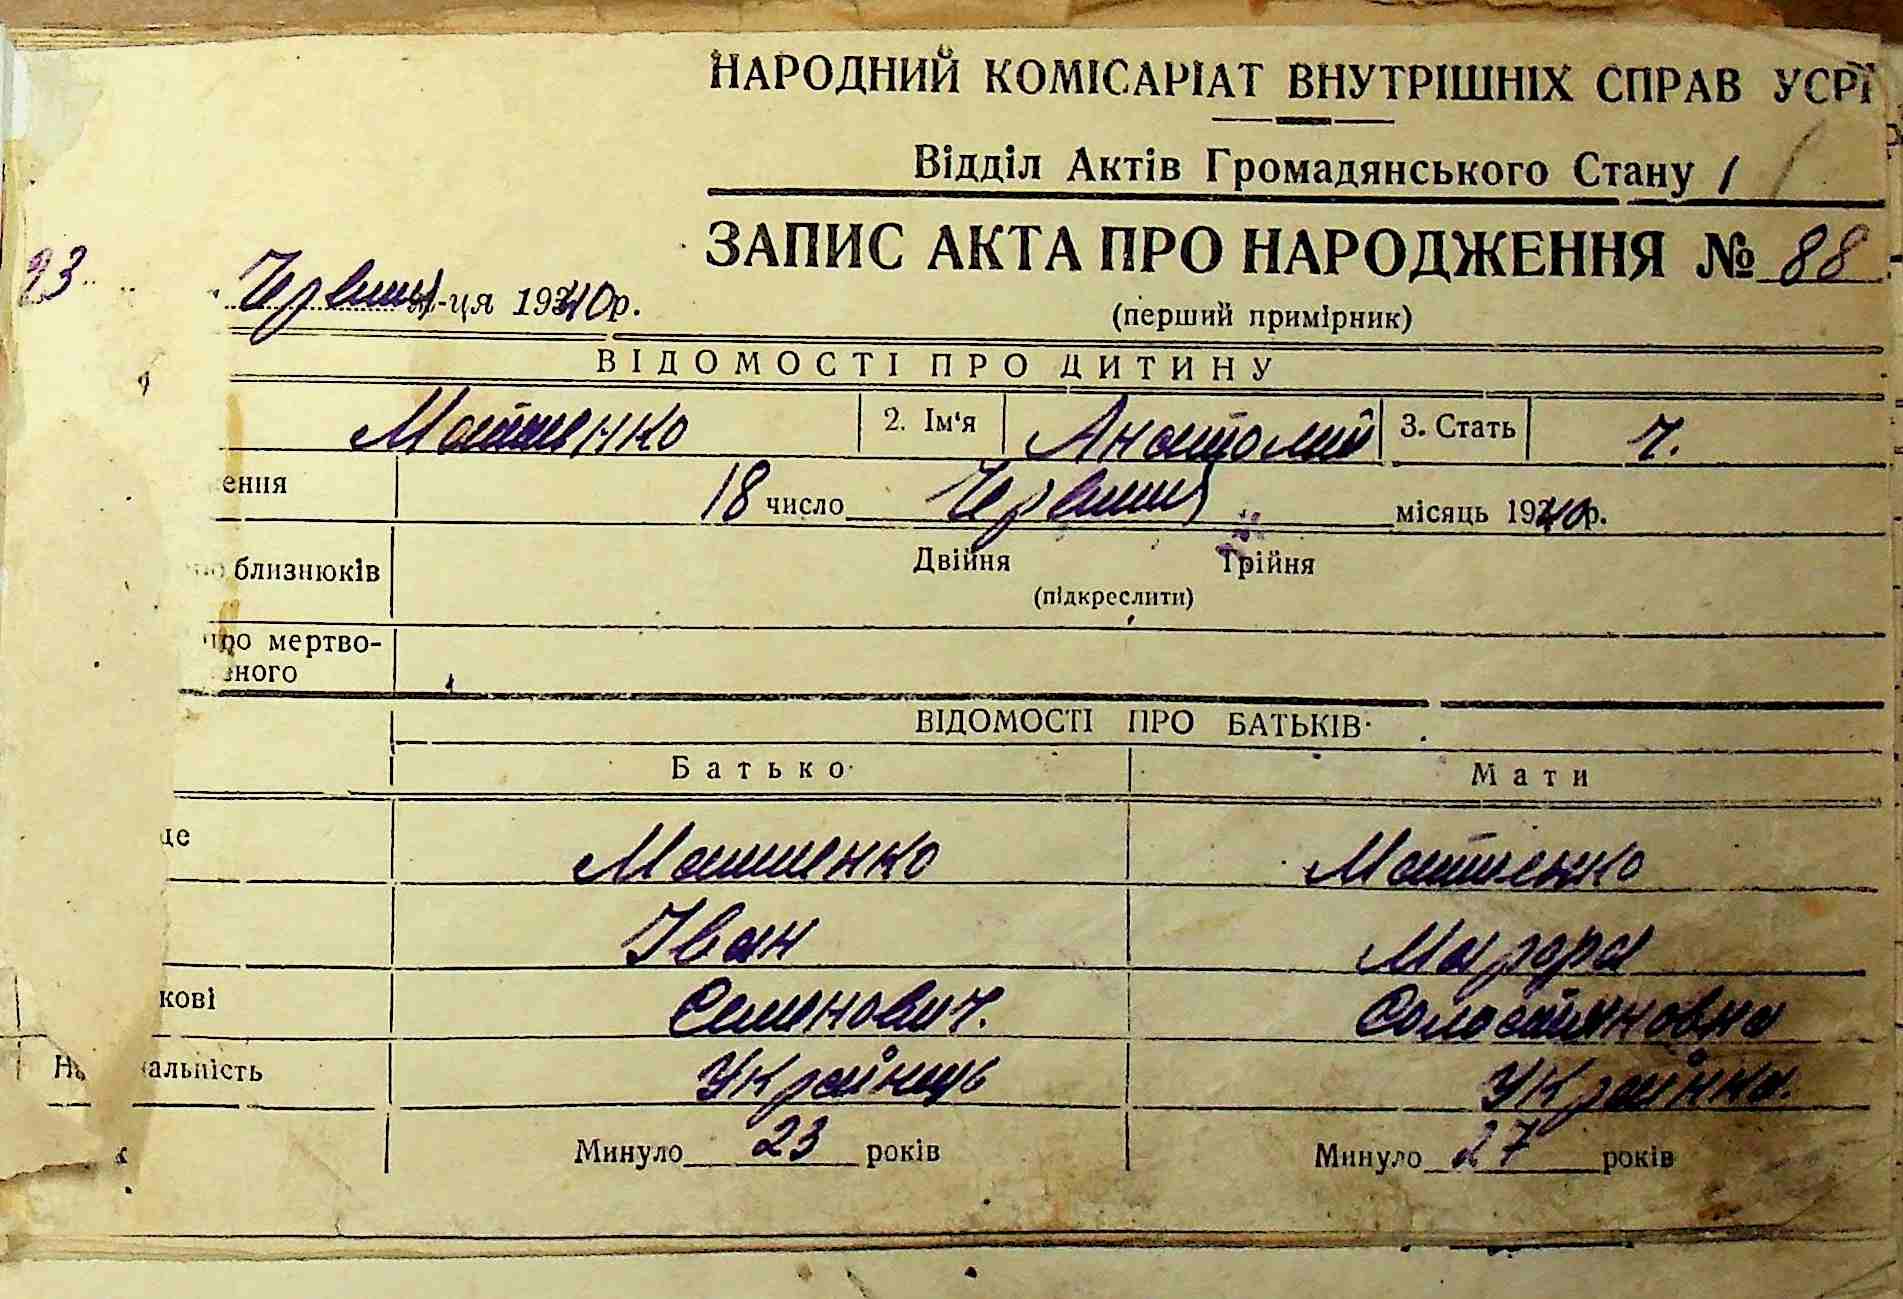 НАРОДНИЙ КОМІСАРІАТ ВНУТРІШНІХ СПРАВ УСРР
Відділ Актів Громадянського Стану
ЗАПИС АКТА ПРО НАРОДЖЕННЯ № 88
23 Червня м-ця 1940 р.
(перший примірник)
ВІДОМОСТІ ПРО ДИТИНУ
2. Ім'я Анатолий 3. Стать ч.
ення 18 число Червня місяць 1940 р.
близнюків Двійня Трійня
(підкреслити)
про мертво-
еного
ВІДОМОСТІ ПРО БАТЬКІВ
Батько Мати
ще
Іван
кові Семенович.
альність Українець Українка.
Минуло 23 років Минуло 27 років